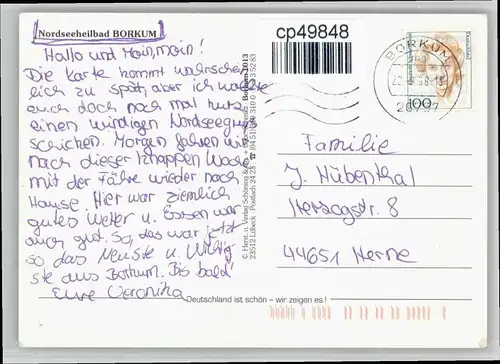 Nordseeheilbad BORKUM
Hallo und Moin, moin!
Die Karte kommt wahrschein
lich zu spät, aber ich wollte
euch doch noch mal kurz
einen windigen Nordseegruß
schicken. Morgen fahren wir
nach dieser knappen Woche
mit der Fähre wieder nach
Hause. Hier war ziemlich
gutes Wetter u. Essen war
auch gut. So, das war jetzt
so das Neuste u. Wichtig
ste aus Borkum. Bis bald!
Eure Veronika
cp49848
BORKUM
26757
100
Familie
J. Hübenthal
Herzogstr. 8
44651 Herne
Deutschland ist schön – wir zeigen es!